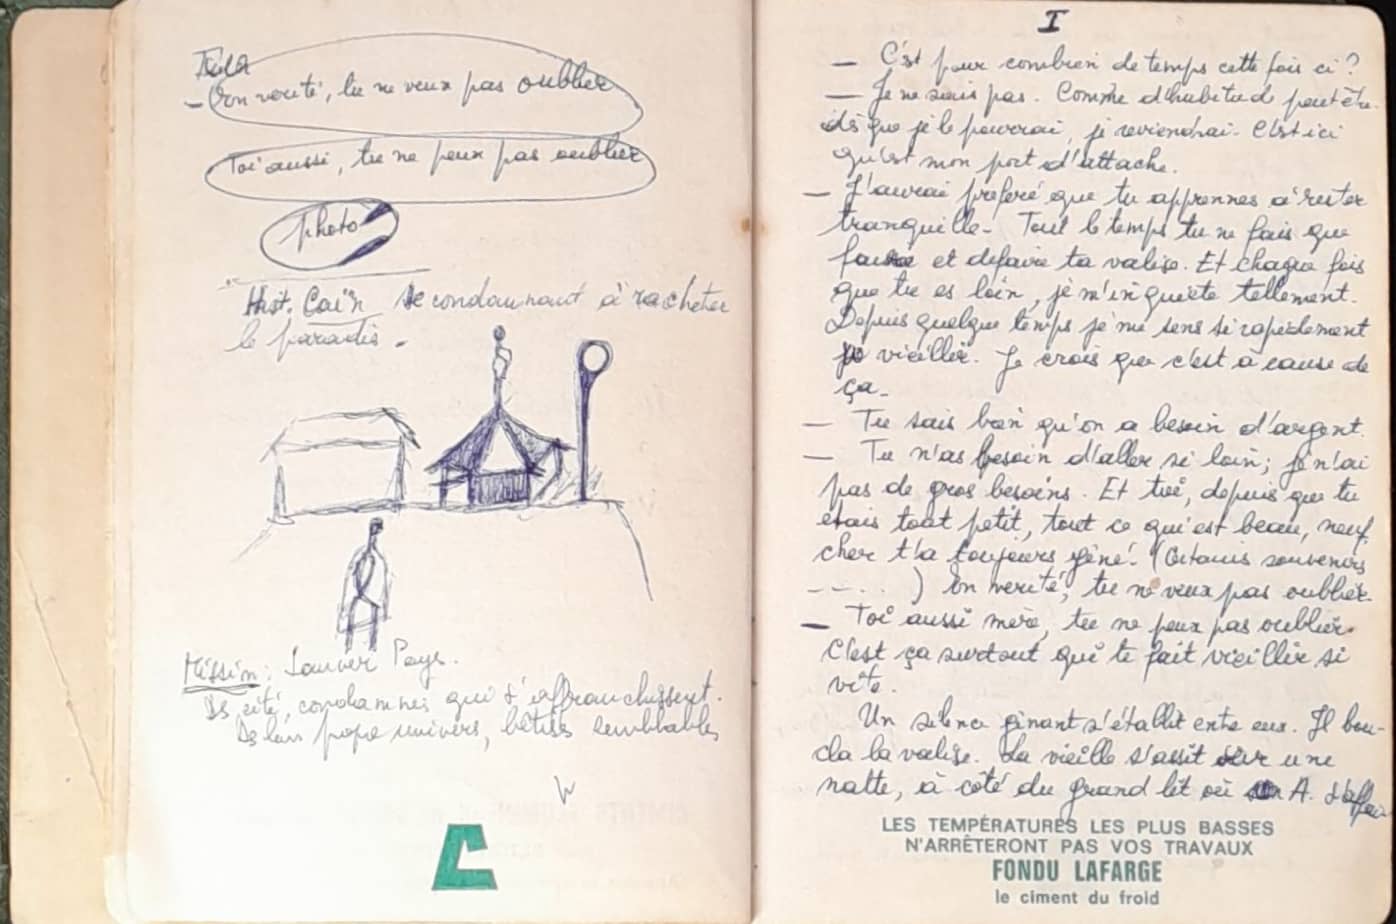 — En vérité, tu ne veux pas oublier
Toi aussi, tu ne peux pas oublier
photo
Hist. Caïn se condamnant à racheter
le paradis.
Mission: Sauver Pays.
cité, condamnés qui s'affranchissent.
De leur propre univers, bêtises semblables
I
— C'est pour combien de temps cette fois ci ?
— Je ne sais pas. Comme d'habitude peut être.
dès que je le pourrai, je reviendrai. C'est ici
qu'est mon port d'attache.
— J'aurai preferé que tu apprennes à rester
tranquille. Tout le temps tu ne fais que
faire et defaire ta valise. Et chaque fois
que tu es loin, je m'inquiète tellement.
Depuis quelque temps je me sens si rapidement
vieillir. Je crois que c'est à cause de
ça.
— Tu sais bien qu'on a besoin d'argent.
— Tu n'as besoin d'aller si loin ; je n'ai
pas de gros besoins. Et toi, depuis que tu
étais tout petit, tout ce qui est beau, neuf,
cher t'a toujours gêné. (Certains souvenirs
- - . . . ) En verité, tu ne veux pas oublier.
— Toi aussi mère, tu ne peux pas oublier.
C'est ça surtout qui te fait vieillir si
vite.
Un silence gênant s'établit entre eux. Il bou-
cla la valise. La vieille s'assit sur une
natte, à côté du grand lit où A.
LES TEMPÉRATURES LES PLUS BASSES
N'ARRÊTERONT PAS VOS TRAVAUX
FONDU LAFARGE
le ciment du froid